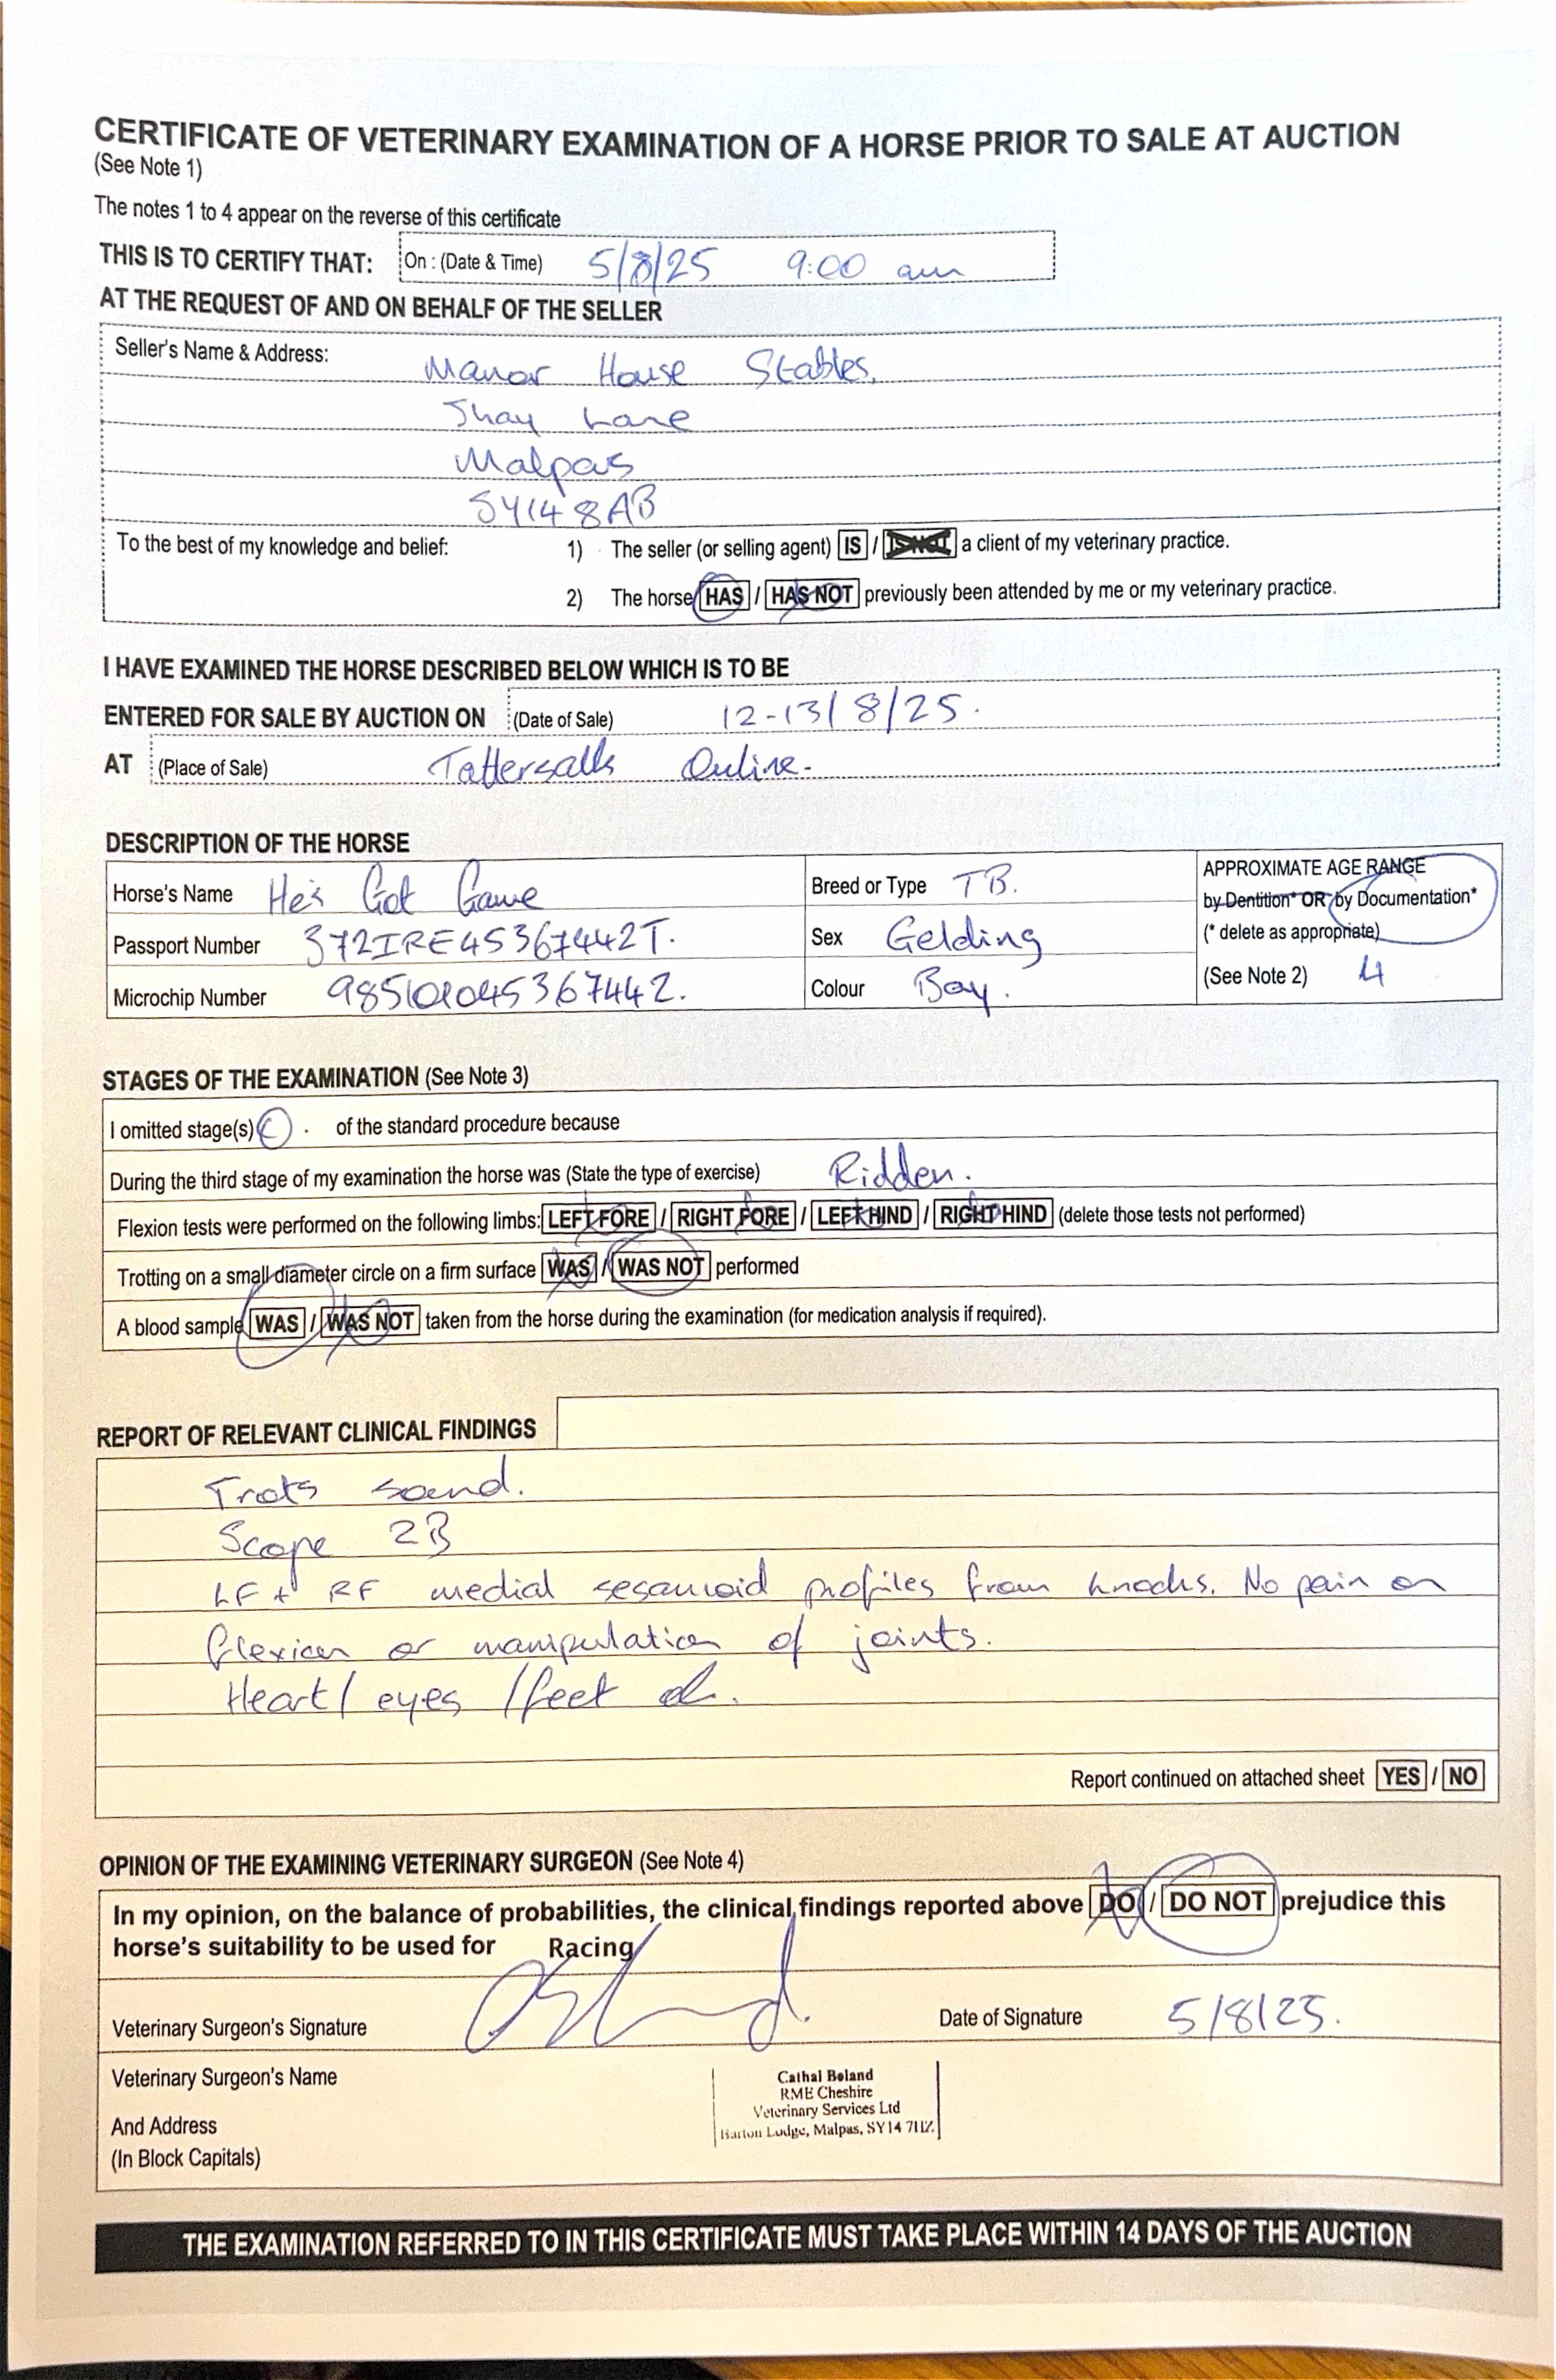 CERTIFICATE OF VETERINARY EXAMINATION OF A HORSE PRIOR TO SALE AT AUCTION
(See Note 1)
The notes 1 to 4 appear on the reverse of this certificate
THIS IS TO CERTIFY THAT: On : (Date & Time) 5/8/25 9:00 am
AT THE REQUEST OF AND ON BEHALF OF THE SELLER
Seller's Name & Address: Manor House Stables,
Shay Lane
Malpas
SY14 8AB
To the best of my knowledge and belief: 1) The seller (or selling agent) IS / IS NOT a client of my veterinary practice.
2) The horse HAS / HAS NOT previously been attended by me or my veterinary practice.
I HAVE EXAMINED THE HORSE DESCRIBED BELOW WHICH IS TO BE
ENTERED FOR SALE BY AUCTION ON (Date of Sale) 12-13/8/25.
AT (Place of Sale) Tattersalls Online.
DESCRIPTION OF THE HORSE
Horse's Name He's Got Game Breed or Type TB. APPROXIMATE AGE RANGE
by Dentition* OR by Documentation*
Passport Number 372IRE45367442T. Sex Gelding (* delete as appropriate)
Microchip Number 985101045367442. Colour Bay. (See Note 2) 4
STAGES OF THE EXAMINATION (See Note 3)
I omitted stage(s) . of the standard procedure because
During the third stage of my examination the horse was (State the type of exercise) Ridden.
Flexion tests were performed on the following limbs: LEFT FORE / RIGHT FORE / LEFT HIND / RIGHT HIND (delete those tests not performed)
Trotting on a small diameter circle on a firm surface WAS / WAS NOT performed
A blood sample WAS / WAS NOT taken from the horse during the examination (for medication analysis if required).
REPORT OF RELEVANT CLINICAL FINDINGS
Trots sound.
Scope 2B
LF + RF medial sesamoid profiles from knocks. No pain on
flexion or manipulation of joints.
Heart / eyes / feet ok.
Report continued on attached sheet YES / NO
OPINION OF THE EXAMINING VETERINARY SURGEON (See Note 4)
In my opinion, on the balance of probabilities, the clinical findings reported above DO / DO NOT prejudice this
horse's suitability to be used for Racing
Veterinary Surgeon's Signature Date of Signature 5/8/25.
Veterinary Surgeon's Name
And Address
(In Block Capitals)
Cathal Beland
RME Cheshire
Veterinary Services Ltd
Barton Lodge, Malpas, SY14 7HZ
THE EXAMINATION REFERRED TO IN THIS CERTIFICATE MUST TAKE PLACE WITHIN 14 DAYS OF THE AUCTION